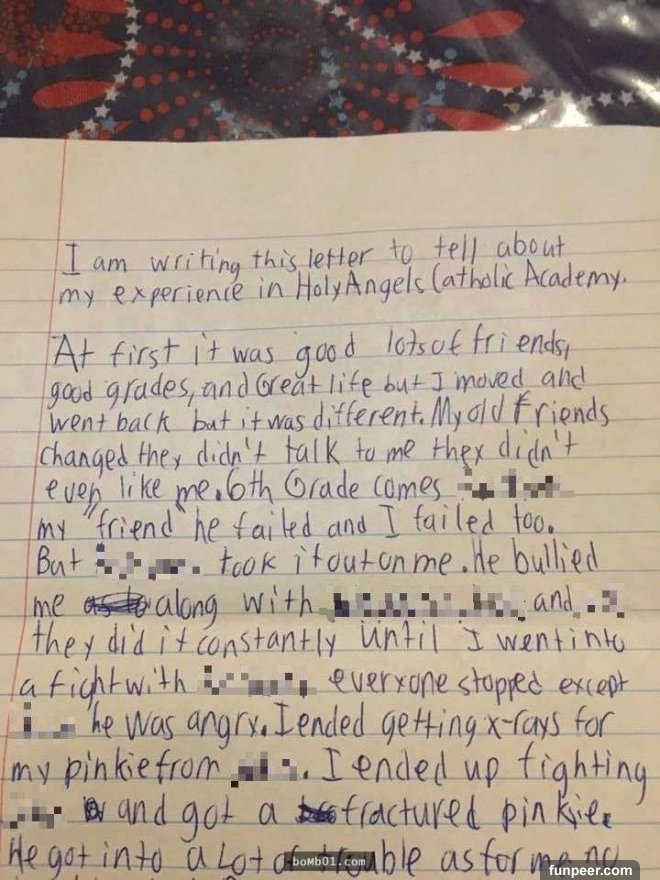 I am writing this letter to tell about
my experience in Holy Angels Catholic Academy.
At first it was good lots of friends,
good grades, and Great life but I moved and
went back but it was different. My old friends
changed they didn't talk to me they didn't
even like me. 6th Grade comes
my "friend" he failed and I failed too.
But took it out on me. He bullied
me along with and
they did it constantly until I went into
a fight with everyone stopped except
he was angry. I ended getting x-rays for
my pinkie from . I ended up fighting
and got a fractured pinkie.
He got into a Lot of trouble as for me no
boMb01.com
funpeer.com